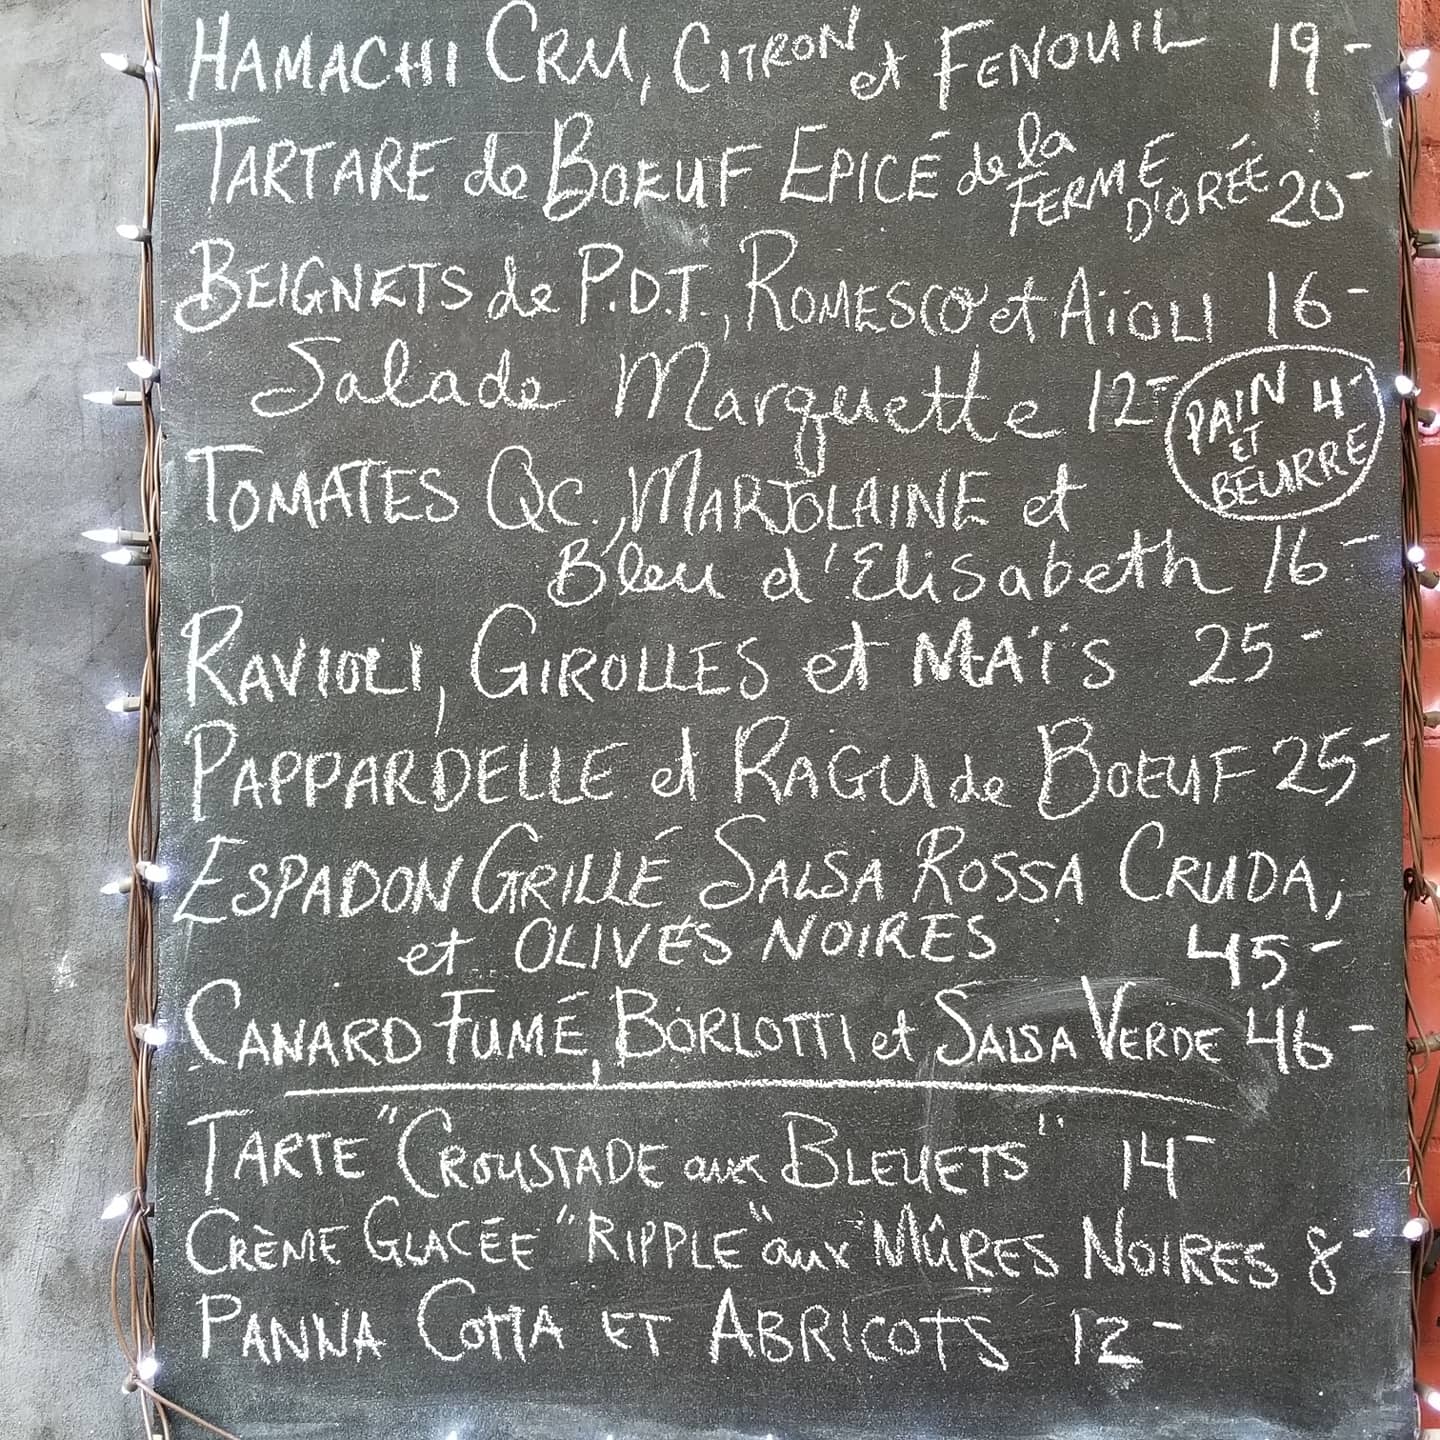 HAMACHI CRU, CITRON et FENOUIL 19-
TARTARE de BOEUF EPICÉ de la FERME D'ORÉE 20-
BEIGNETS de P.D.T., ROMESCO et AÏOLI 16-
Salade Marquette 12-
PAIN 4-
ET
BEURRE
TOMATES QC., MARJOLAINE et
Bleu d'Elisabeth 16-
RAVIOLI, GIROLLES et MAÏS 25-
PAPPARDELLE et RAGU de BOEUF 25-
ESPADON GRILLÉ SALSA ROSSA CRUDA,
et OLIVES NOIRES 45-
CANARD FUMÉ, BORLOTTI et SALSA VERDE 46-
TARTE "CROUSTADE aux BLEUETS" 14-
CRÈME GLACÉE "RIPPLE" aux MÛRES NOIRES 8-
PANNA COTTA ET ABRICOTS 12-